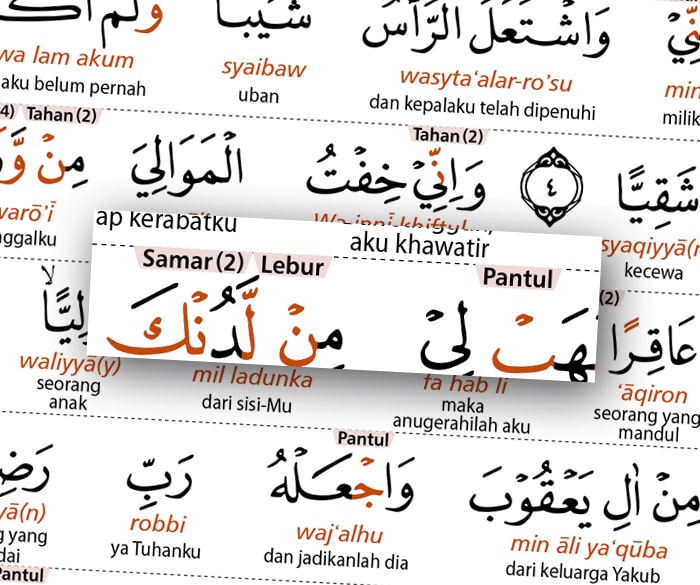 وَاشْتَعَلَ الرَّأْسُ شَيْبًا
wasyta‘alar-ro’su syaibaw wa lam akum
dan kepalaku telah dipenuhi uban aku belum pernah
Tahan (2) Tahan (2)
شَقِيًّا ٤ وَاِنِّيْ خِفْتُ الْمَوَالِيَ مِنْ
kecewa
ap kerabatku aku khawatir
Pantul Lebur Samar (2)
هَبْ لِيْ مِنْ لَّدُنْكَ
عَاقِرًا
‘āqiron fa hab lī mil ladunka waliyyā(y)
seorang yang mandul maka anugerahilah aku dari sisi-Mu seorang anak
Pantul
مِنْ اٰلِ يَعْقُوْبَ وَاجْعَلْهُ رَبِّ
min āli ya‘qūba waj‘alhu robbi
dari keluarga Yakub dan jadikanlah dia ya Tuhanku
Pantul